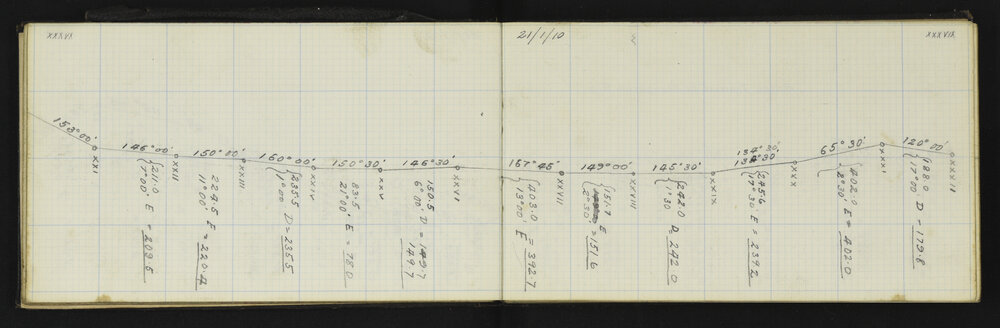 XXXVX
21/1/10
XXXVIX
153°00'
146°00'
150°00'
160°00'
150°30'
146°30'
167°45'
149°00'
145°30'
134°30'
134°30
65°30'
120°00'
XXI
XXII
XXIII
XXIV
XXV
XXVI
XXVII
XXVIII
XXIX
XXX
XXXI
XXXII
211.0 E = 209.5
7°00'
224.5 E = 220.4
11°00'
235.5 D = 235.5
1°00'
83.5 E = 78.0
21°00'
150.5 D = 149.7
6°00' 149.7
403.0 E = 392.7
13°00'
151.7 E = 151.6
2°30'
242.0 D = 242.0
1°30
245.6 E = 239.2
7°30
402.0 E = 402.0
2°30'
188.0 D = 179.8
17°00'